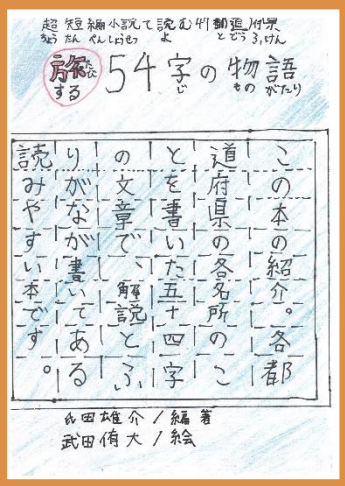 超短編小説で読む47都道府県
きょうたんぺんしょうせつ よ とどうふけん
旅する54字の物語
たび じ ものがたり
この本の紹介。各都
道府県の各名所のこ
とを書いた五十四字
の文章で、解説とふ
りがなが書いてある
読みやすい本です。
氏田雄介/編著
武田侑大/絵